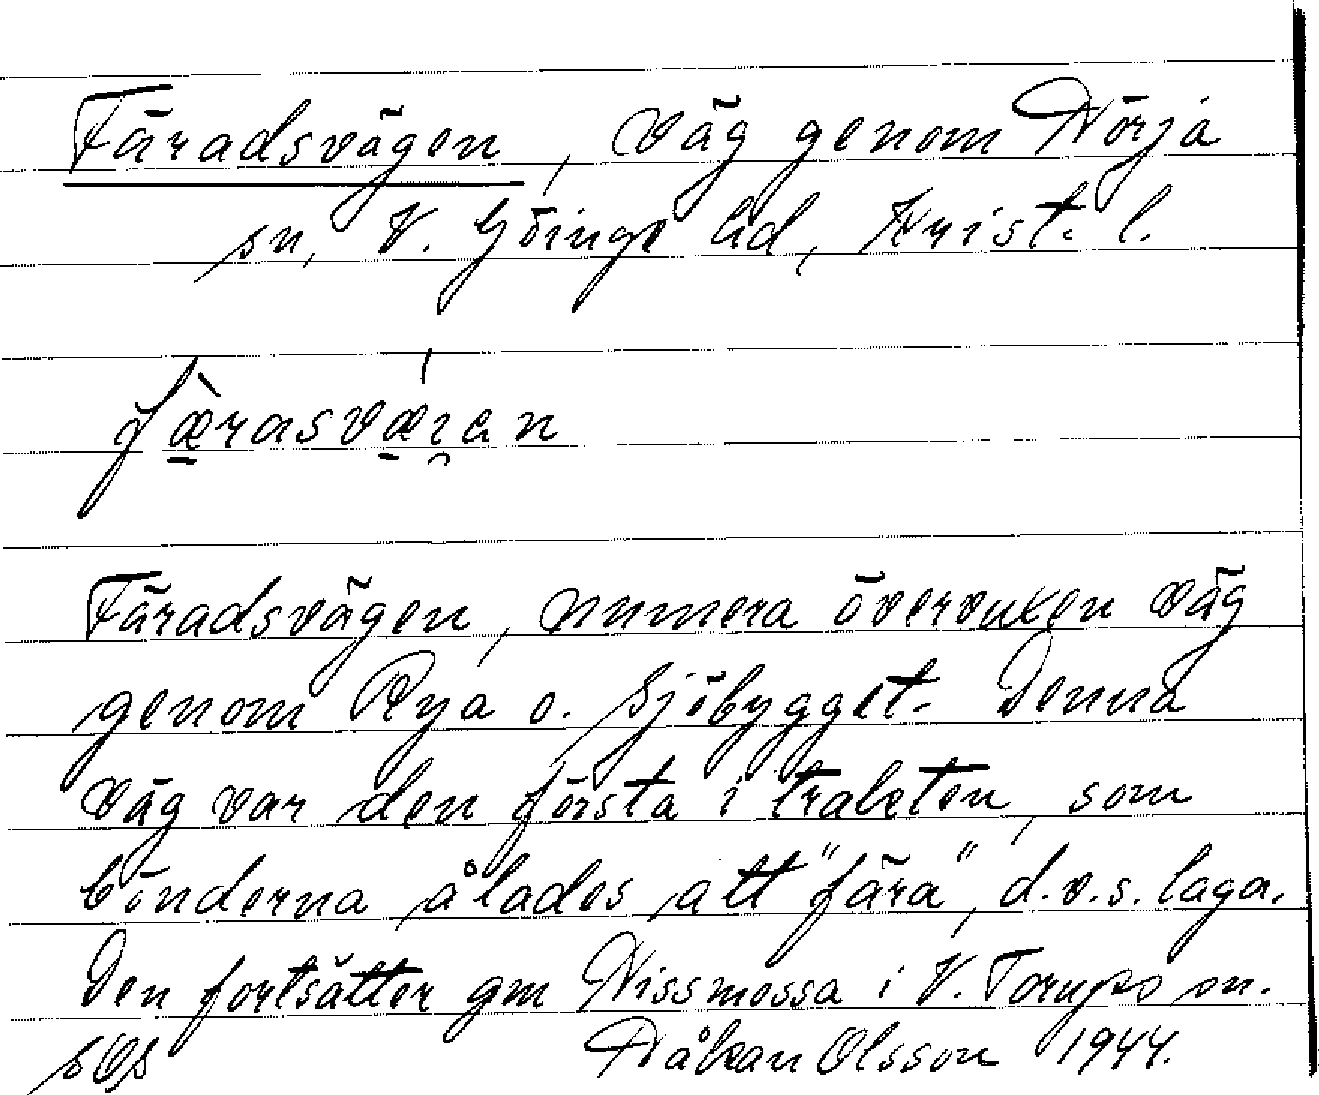 Färadsvägen, väg genom Nörja
sn, V. Göinge hd, Krist. l.
fæ̀rasvæ̍ı̯an
Färadsvägen, numera övervuxen väg
genom Rya o. Sjöbygget. Denna
väg var den första i trakten, som
bönderna ålades att "fära", d.v.s. laga.
Den fortsätter gm Nissmossa i V. Torups sn.
Håkan Olsson 1944.